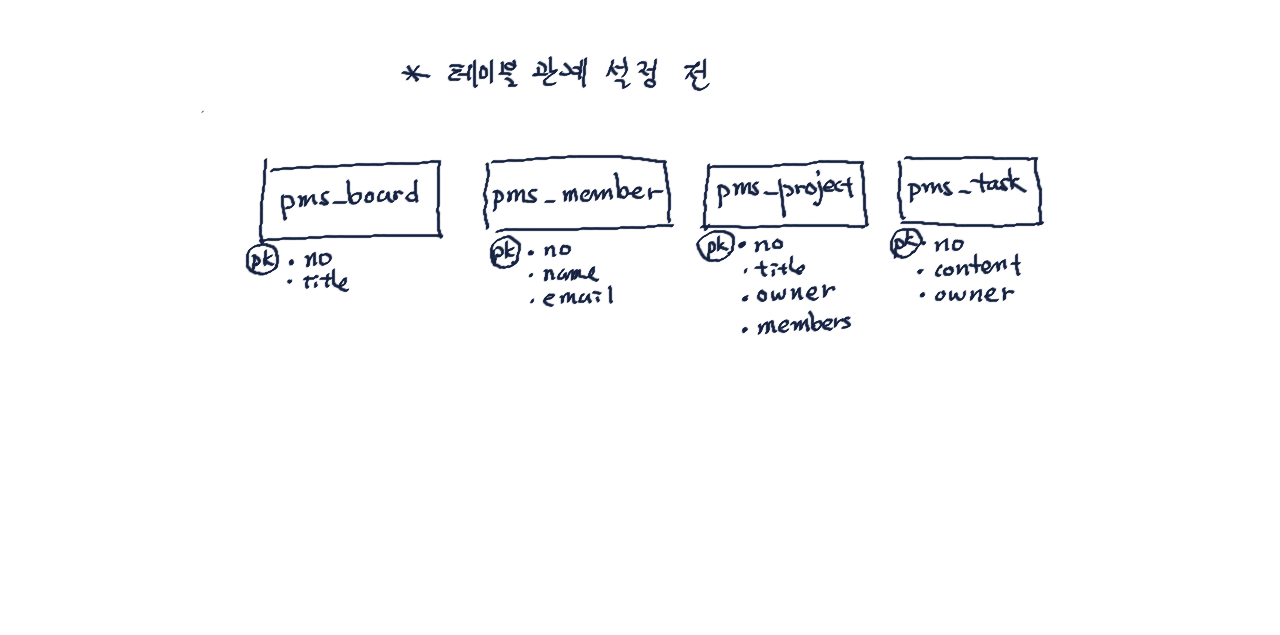 * 테이블 관계 설정 전
pms_board
pk • no
• title
pms_member
pk • no
• name
• email
pms_project
pk • no
• title
• owner
• members
pms_task
pk • no
• content
• owner